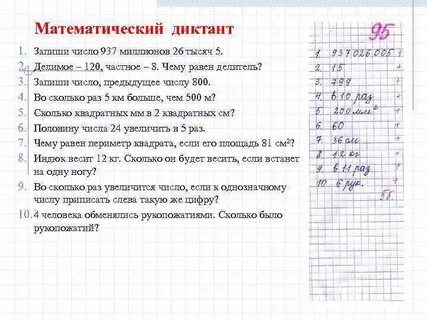 Математический диктант
1. Запиши число 937 миллионов 26 тысяч 5.
2. Делимое – 120, частное – 8. Чему равен делитель?
3. Запиши число, предыдущее числу 800.
4. Во сколько раз 5 км больше, чем 500 м?
5. Сколько квадратных мм в 2 квадратных см?
6. Половину числа 24 увеличить в 5 раз.
7. Чему равен периметр квадрата, если его площадь 81 см²?
8. Индюк весит 12 кг. Сколько он будет весить, если встанет
на одну ногу?
9. Во сколько раз увеличится число, если к однозначному
числу приписать слева такую же цифру?
10. 4 человека обменялись рукопожатиями. Сколько было
рукопожатий?
95
1. 937.026.005 +
2. 15 +
3. 799 +
4. в 10 раз +
5. 200 мм² +
6. 60 +
7. 36 см +
8. 12 кг +
9. в 11 раз +
10. 6 рук. +